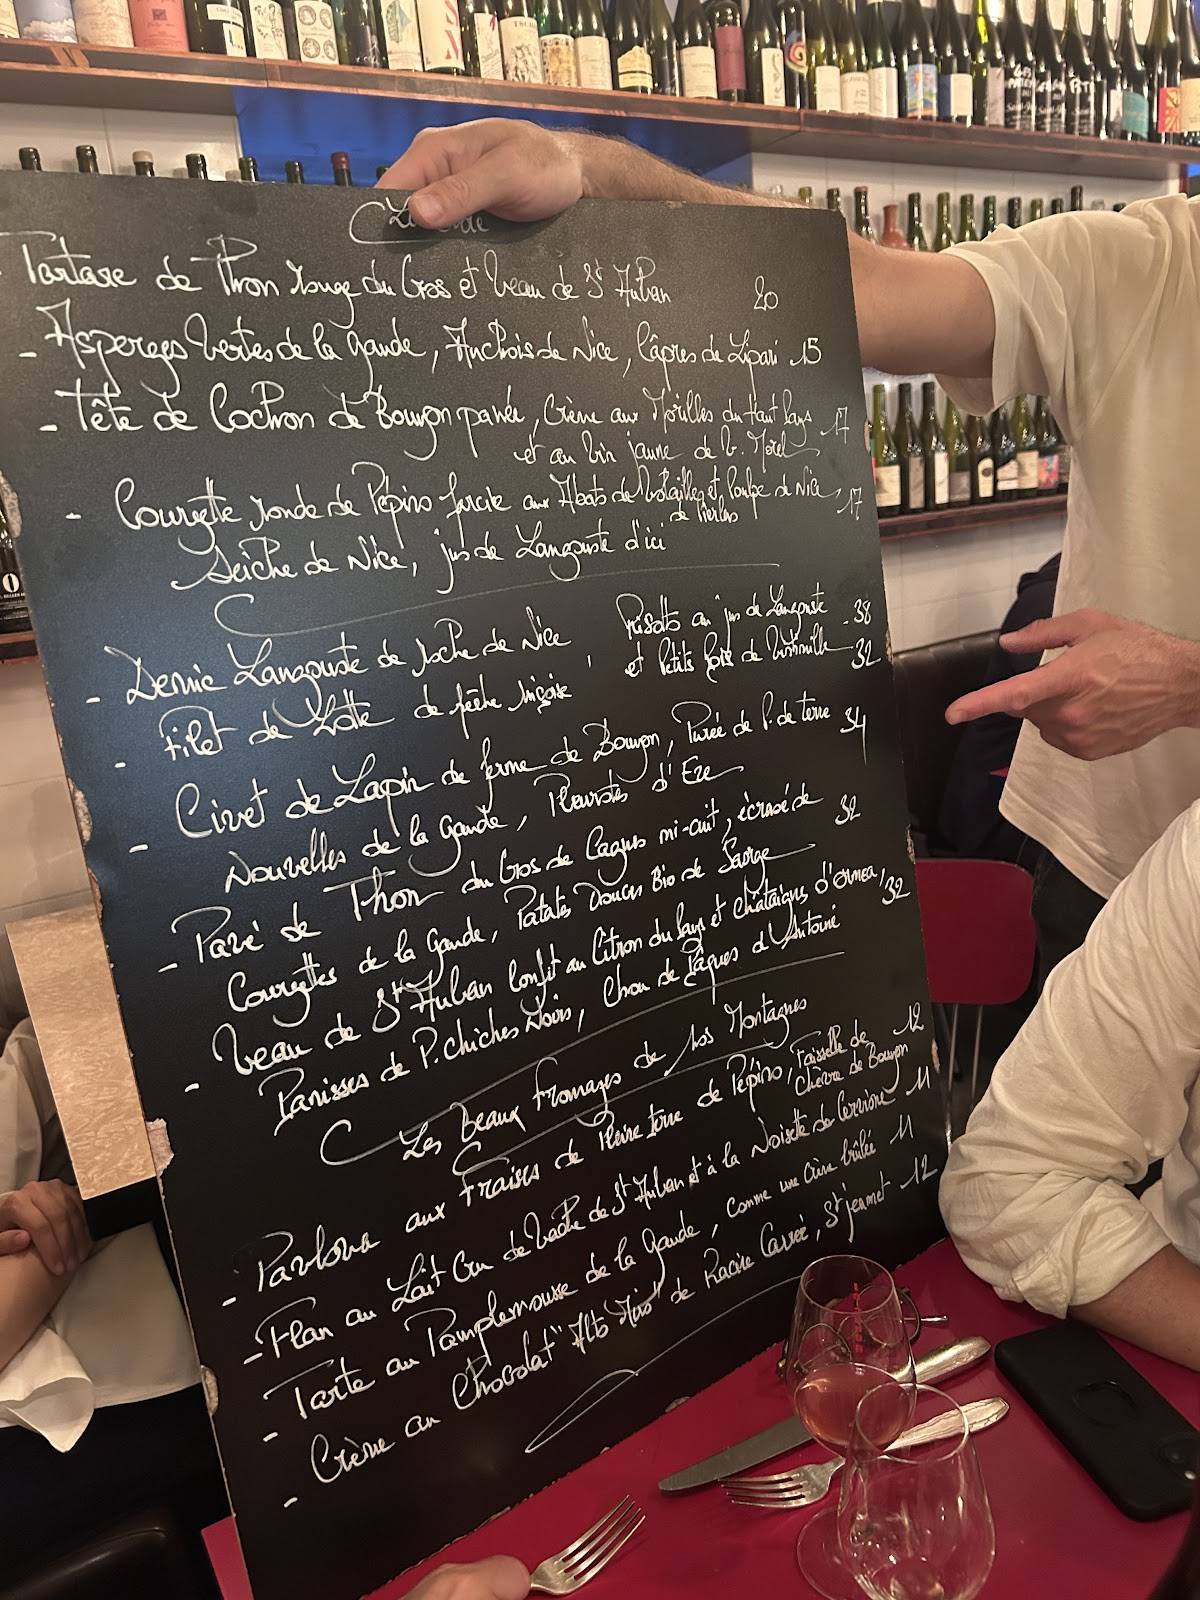 Tartare de Thon rouge du Cros et Veau de St Auban 20
- Asperges Vertes de la Gaude, Anchois de Nice, Câpres de Lipari 15
- Tête de Cochon de Bouyon panée, Crème aux Morilles du Haut Pays 17
et au Vin jaune de b. Morel
- Courgette ronde de Pépino farcie aux Abats de Volailles et Poulpe de Nice, 17
Seiche de Nice, jus de Langouste d'ici
- Demie Langouste de roche de Nice Risotto au jus de Langouste 38
- Filet de Lotte de pêche niçoise, et Petits Pois de Vintimille 32
- Civet de Lapin de ferme de Bouyon, Purée de P. de terre 34
Nouvelles de la Gaude, Pleurotes d'Eze
- Pavé de Thon du Cros de Cagnes mi-cuit, écrasé de 32
Courgettes de la Gaude, Patates Douces Bio de Saorge
- Veau de St Auban Confit au Citron du Pays et Châtaignes d'Ormea, 32
Panisses de P. chiches Noirs, Chou de Pâques d'Antoine
Les Beaux Fromages de nos Montagnes
- Pavlova aux Fraises de Pleine terre de Pépino, Faisselle de 12
Chèvre de Bouyon
- Flan au Lait Cru de Vache de St Auban et à la Noisette de Cervione 11
- Tarte au Pamplemousse de la Gaude, comme une Crème brûlée 11
- Crème au Chocolat "Alto Mayo" de Racine Carrée, St Jeannet 12